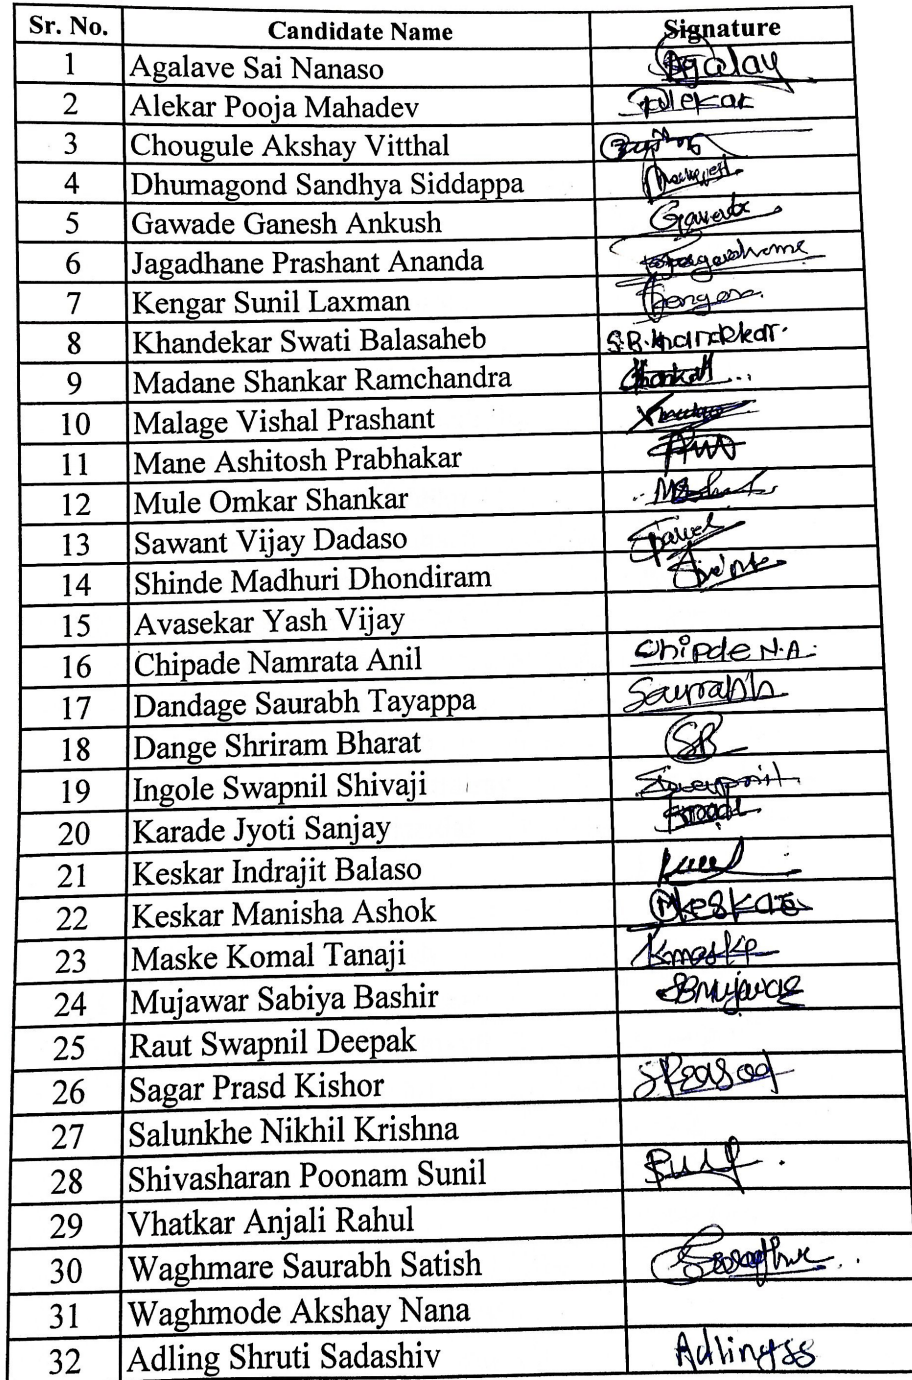 Sr. No. Candidate Name Signature
1 Agalave Sai Nanaso Agalav
2 Alekar Pooja Mahadev Palekar
3 Chougule Akshay Vitthal
4 Dhumagond Sandhya Siddappa
5 Gawade Ganesh Ankush Gawade
6 Jagadhane Prashant Ananda
7 Kengar Sunil Laxman
8 Khandekar Swati Balasaheb S.B.Khandekar.
9 Madane Shankar Ramchandra
10 Malage Vishal Prashant
11 Mane Ashitosh Prabhakar
12 Mule Omkar Shankar
13 Sawant Vijay Dadaso
14 Shinde Madhuri Dhondiram
15 Avasekar Yash Vijay
16 Chipade Namrata Anil Chipde N.A.
17 Dandage Saurabh Tayappa Saurabh
18 Dange Shriram Bharat SB
19 Ingole Swapnil Shivaji
20 Karade Jyoti Sanjay
21 Keskar Indrajit Balaso
22 Keskar Manisha Ashok Mkeskar
23 Maske Komal Tanaji Kmaske
24 Mujawar Sabiya Bashir SBmujawar
25 Raut Swapnil Deepak
26 Sagar Prasd Kishor
27 Salunkhe Nikhil Krishna
28 Shivasharan Poonam Sunil
29 Vhatkar Anjali Rahul
30 Waghmare Saurabh Satish
31 Waghmode Akshay Nana
32 Adling Shruti Sadashiv Adlingss